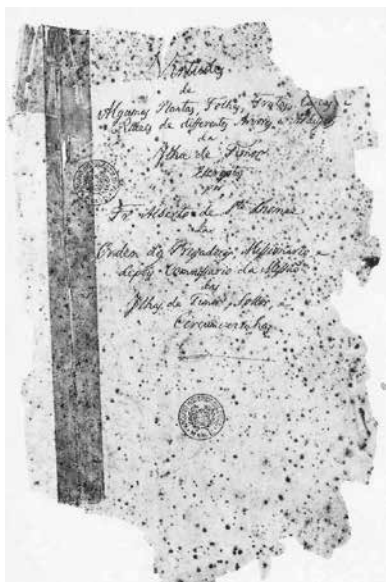 Virtudes
de
Algumas Plantas, Folhas, Frutas, Cascas, e
Raizes de differentes Arvores, e
da
Ilha de Timor
por
Fr. Alberto de S. Thomaz
da
Ordem dos Pregadores, Missionario, e
Commissario da Missão
das
Ilhas de Timor, Solor, e
Circumvezinhas